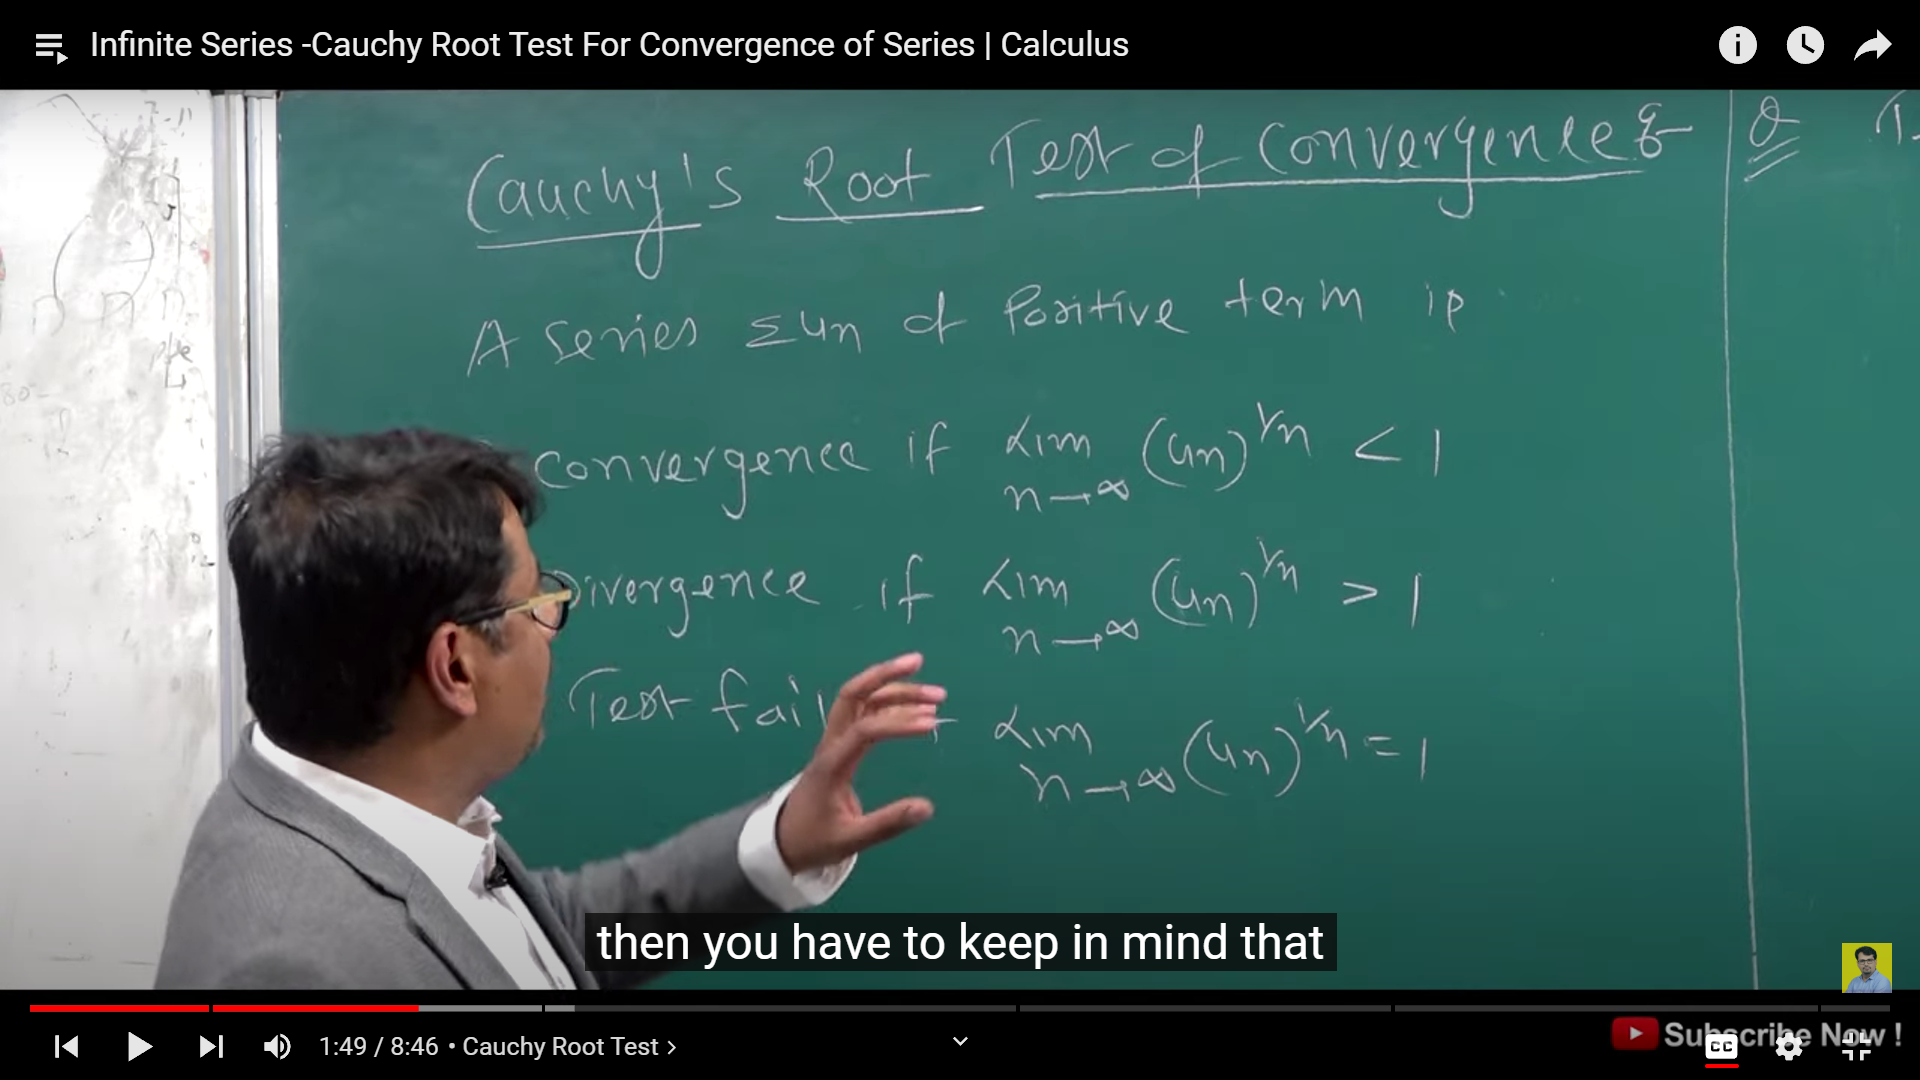 Infinite Series -Cauchy Root Test For Convergence of Series | Calculus
Cauchy's Root Test of Convergence
A series Σun of Positive term is
Convergence if Lim n→∞ (un)^1/n < 1
Divergence if Lim n→∞ (un)^1/n > 1
Test fail Lim n→∞ (un)^1/n = 1
then you have to keep in mind that
1:49 / 8:46 • Cauchy Root Test >
Subscribe Now !
CC